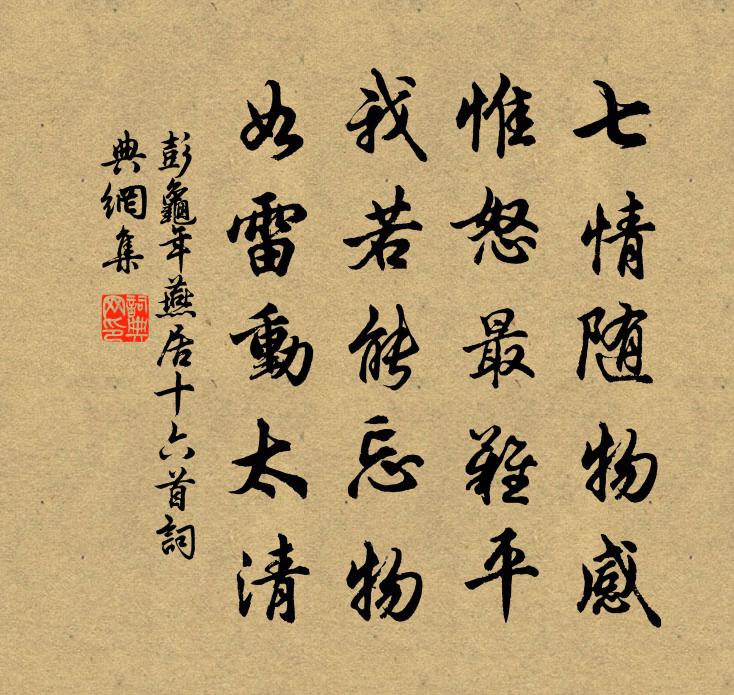 七情随物感
惟怒最難平
我若能忘物
如雷動太清
彭龜年燕居十六首詞
典網集
詞典網印